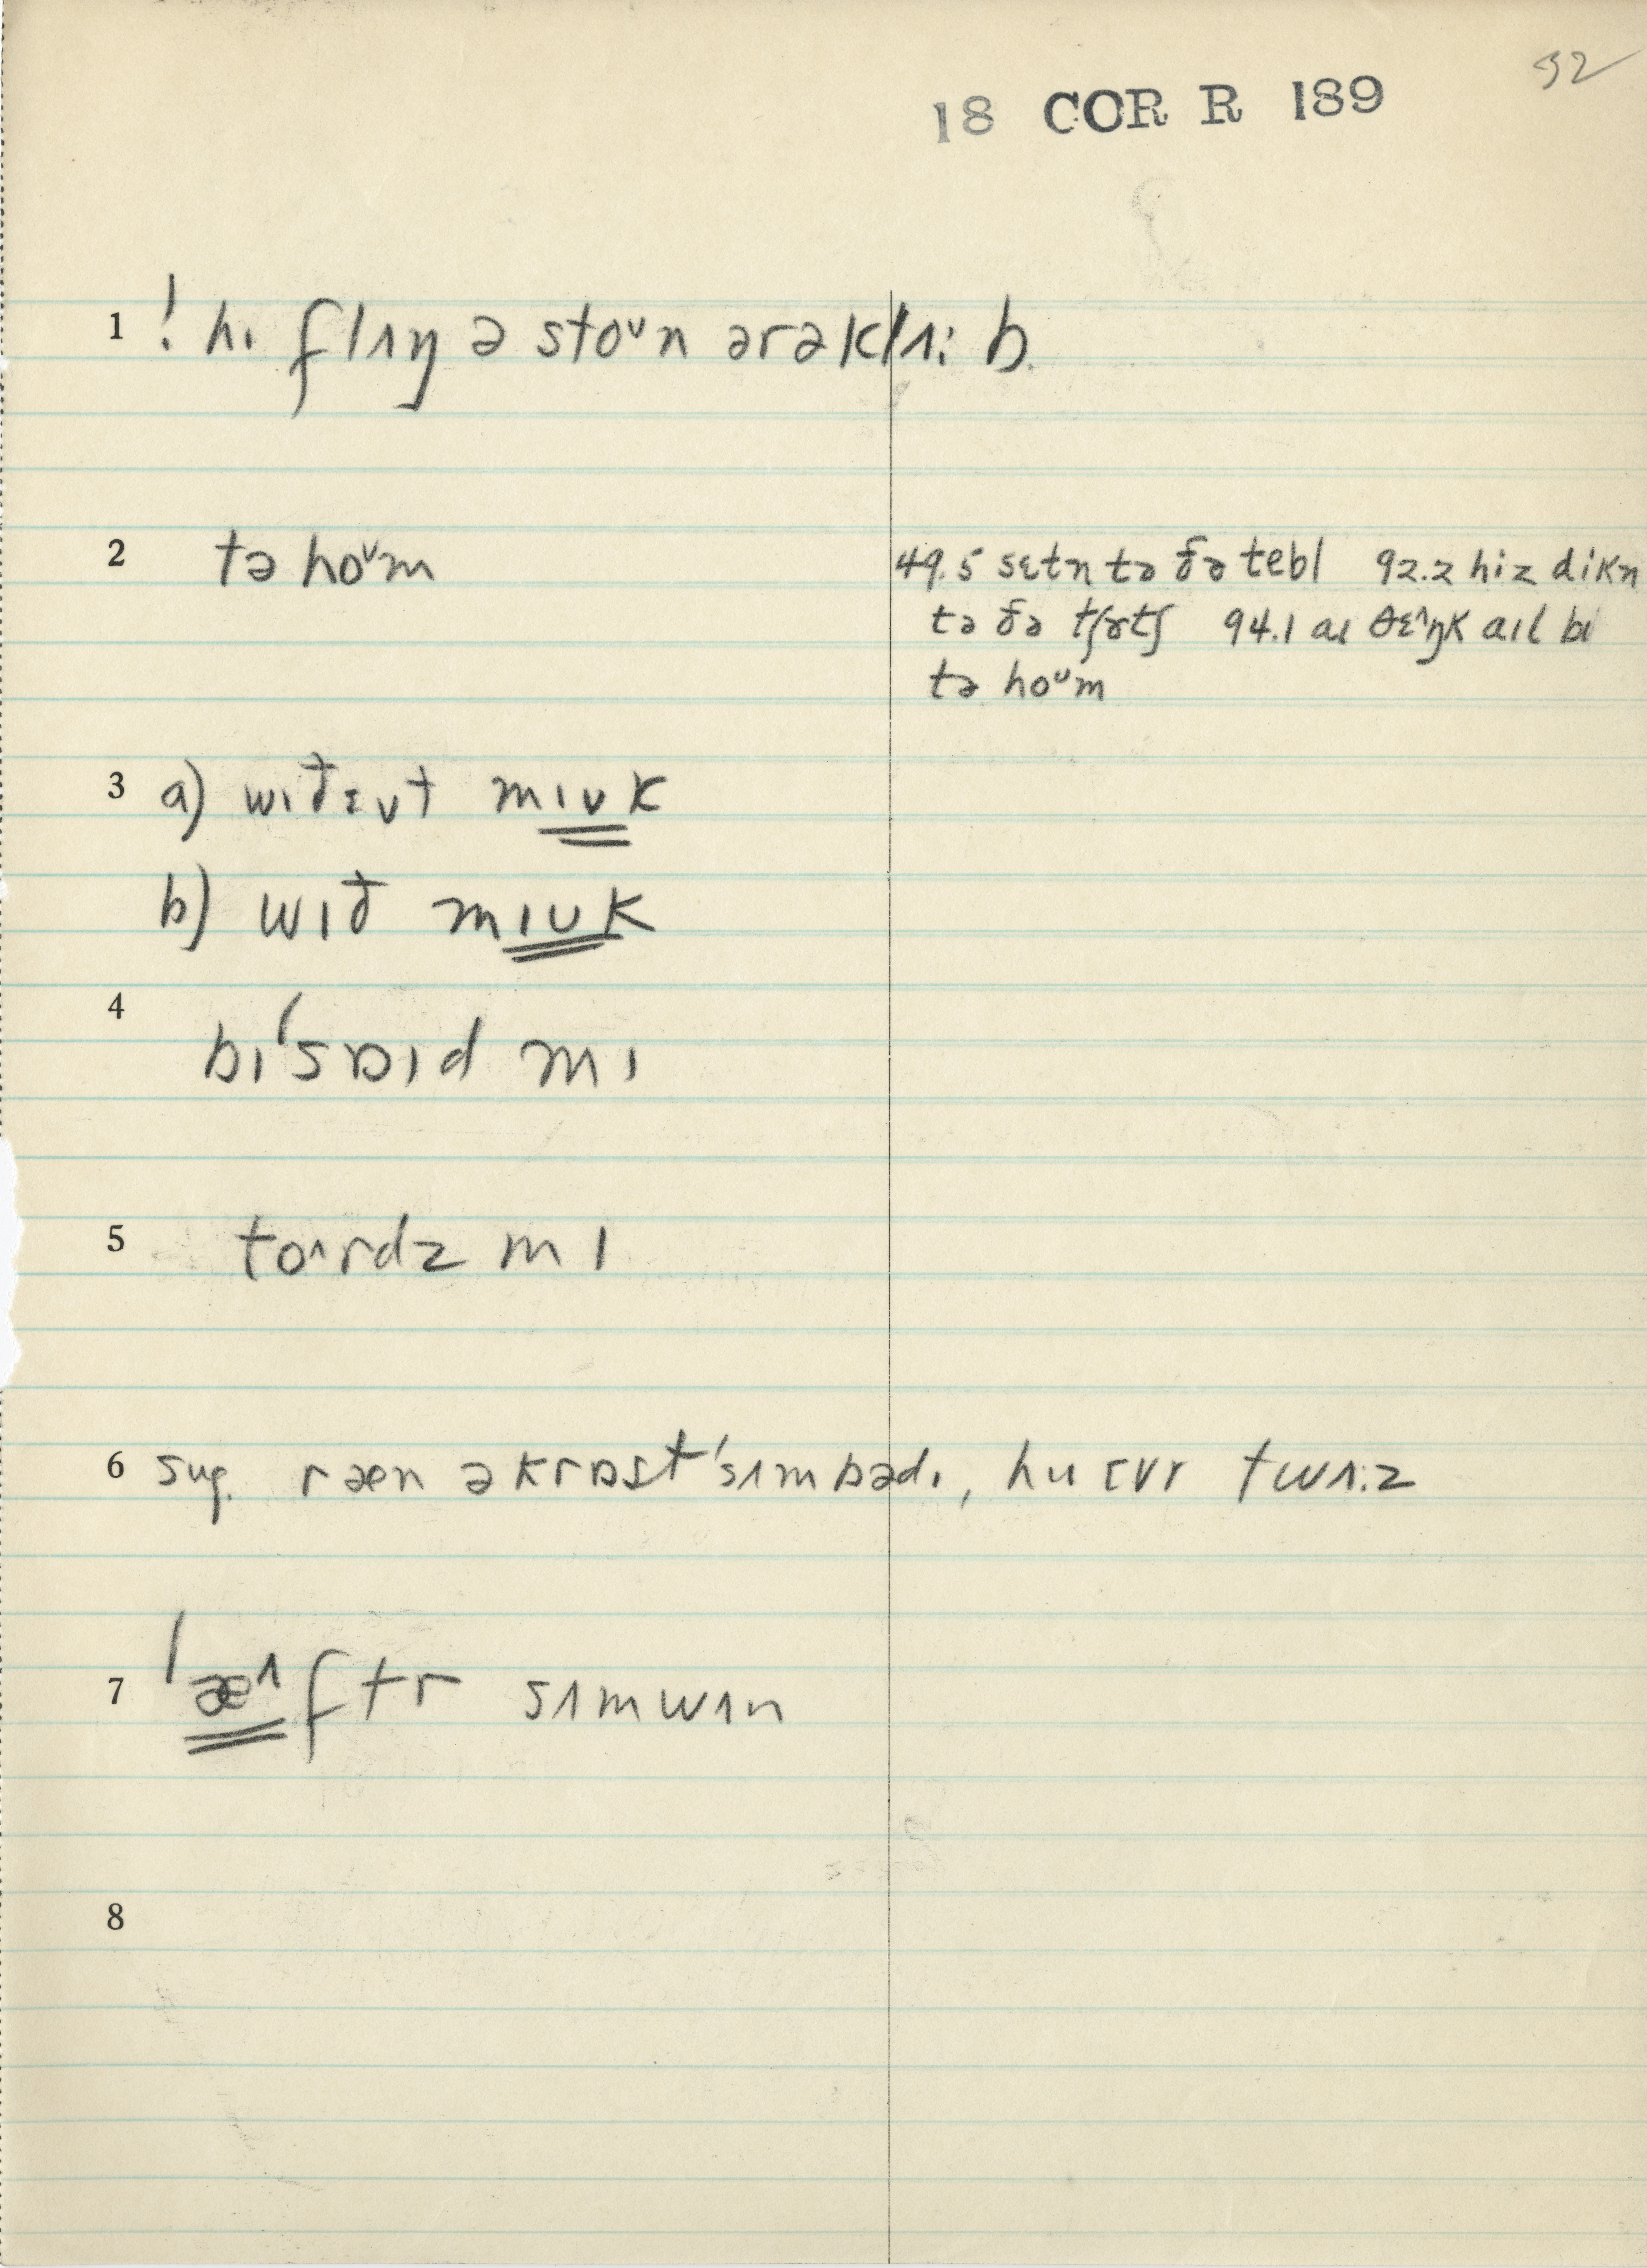 32
18 COR R 189
1 ! hɪ flʌŋ ə stoᵛn ərə k|ʌ: b.
2 tə hoᵛm
49.5 sɛtn tə ðə tebl 92.2 hiz dikn
tə ðə tʃɚtʃ 94.1 aɪ θɛ^ŋk aɪl bɪ
tə hoᵛm
3 a) wɪðɛʊt mɪʊk
b) wɪð mɪʊk
4
bɪ'sɒɪd mɪ
5 to^rdz mɪ
6 sug. ræn əkrɒst 'sʌmbədɪ, hu ɛvr twʌ:z
7 'æ^ftr sʌmwʌn
8